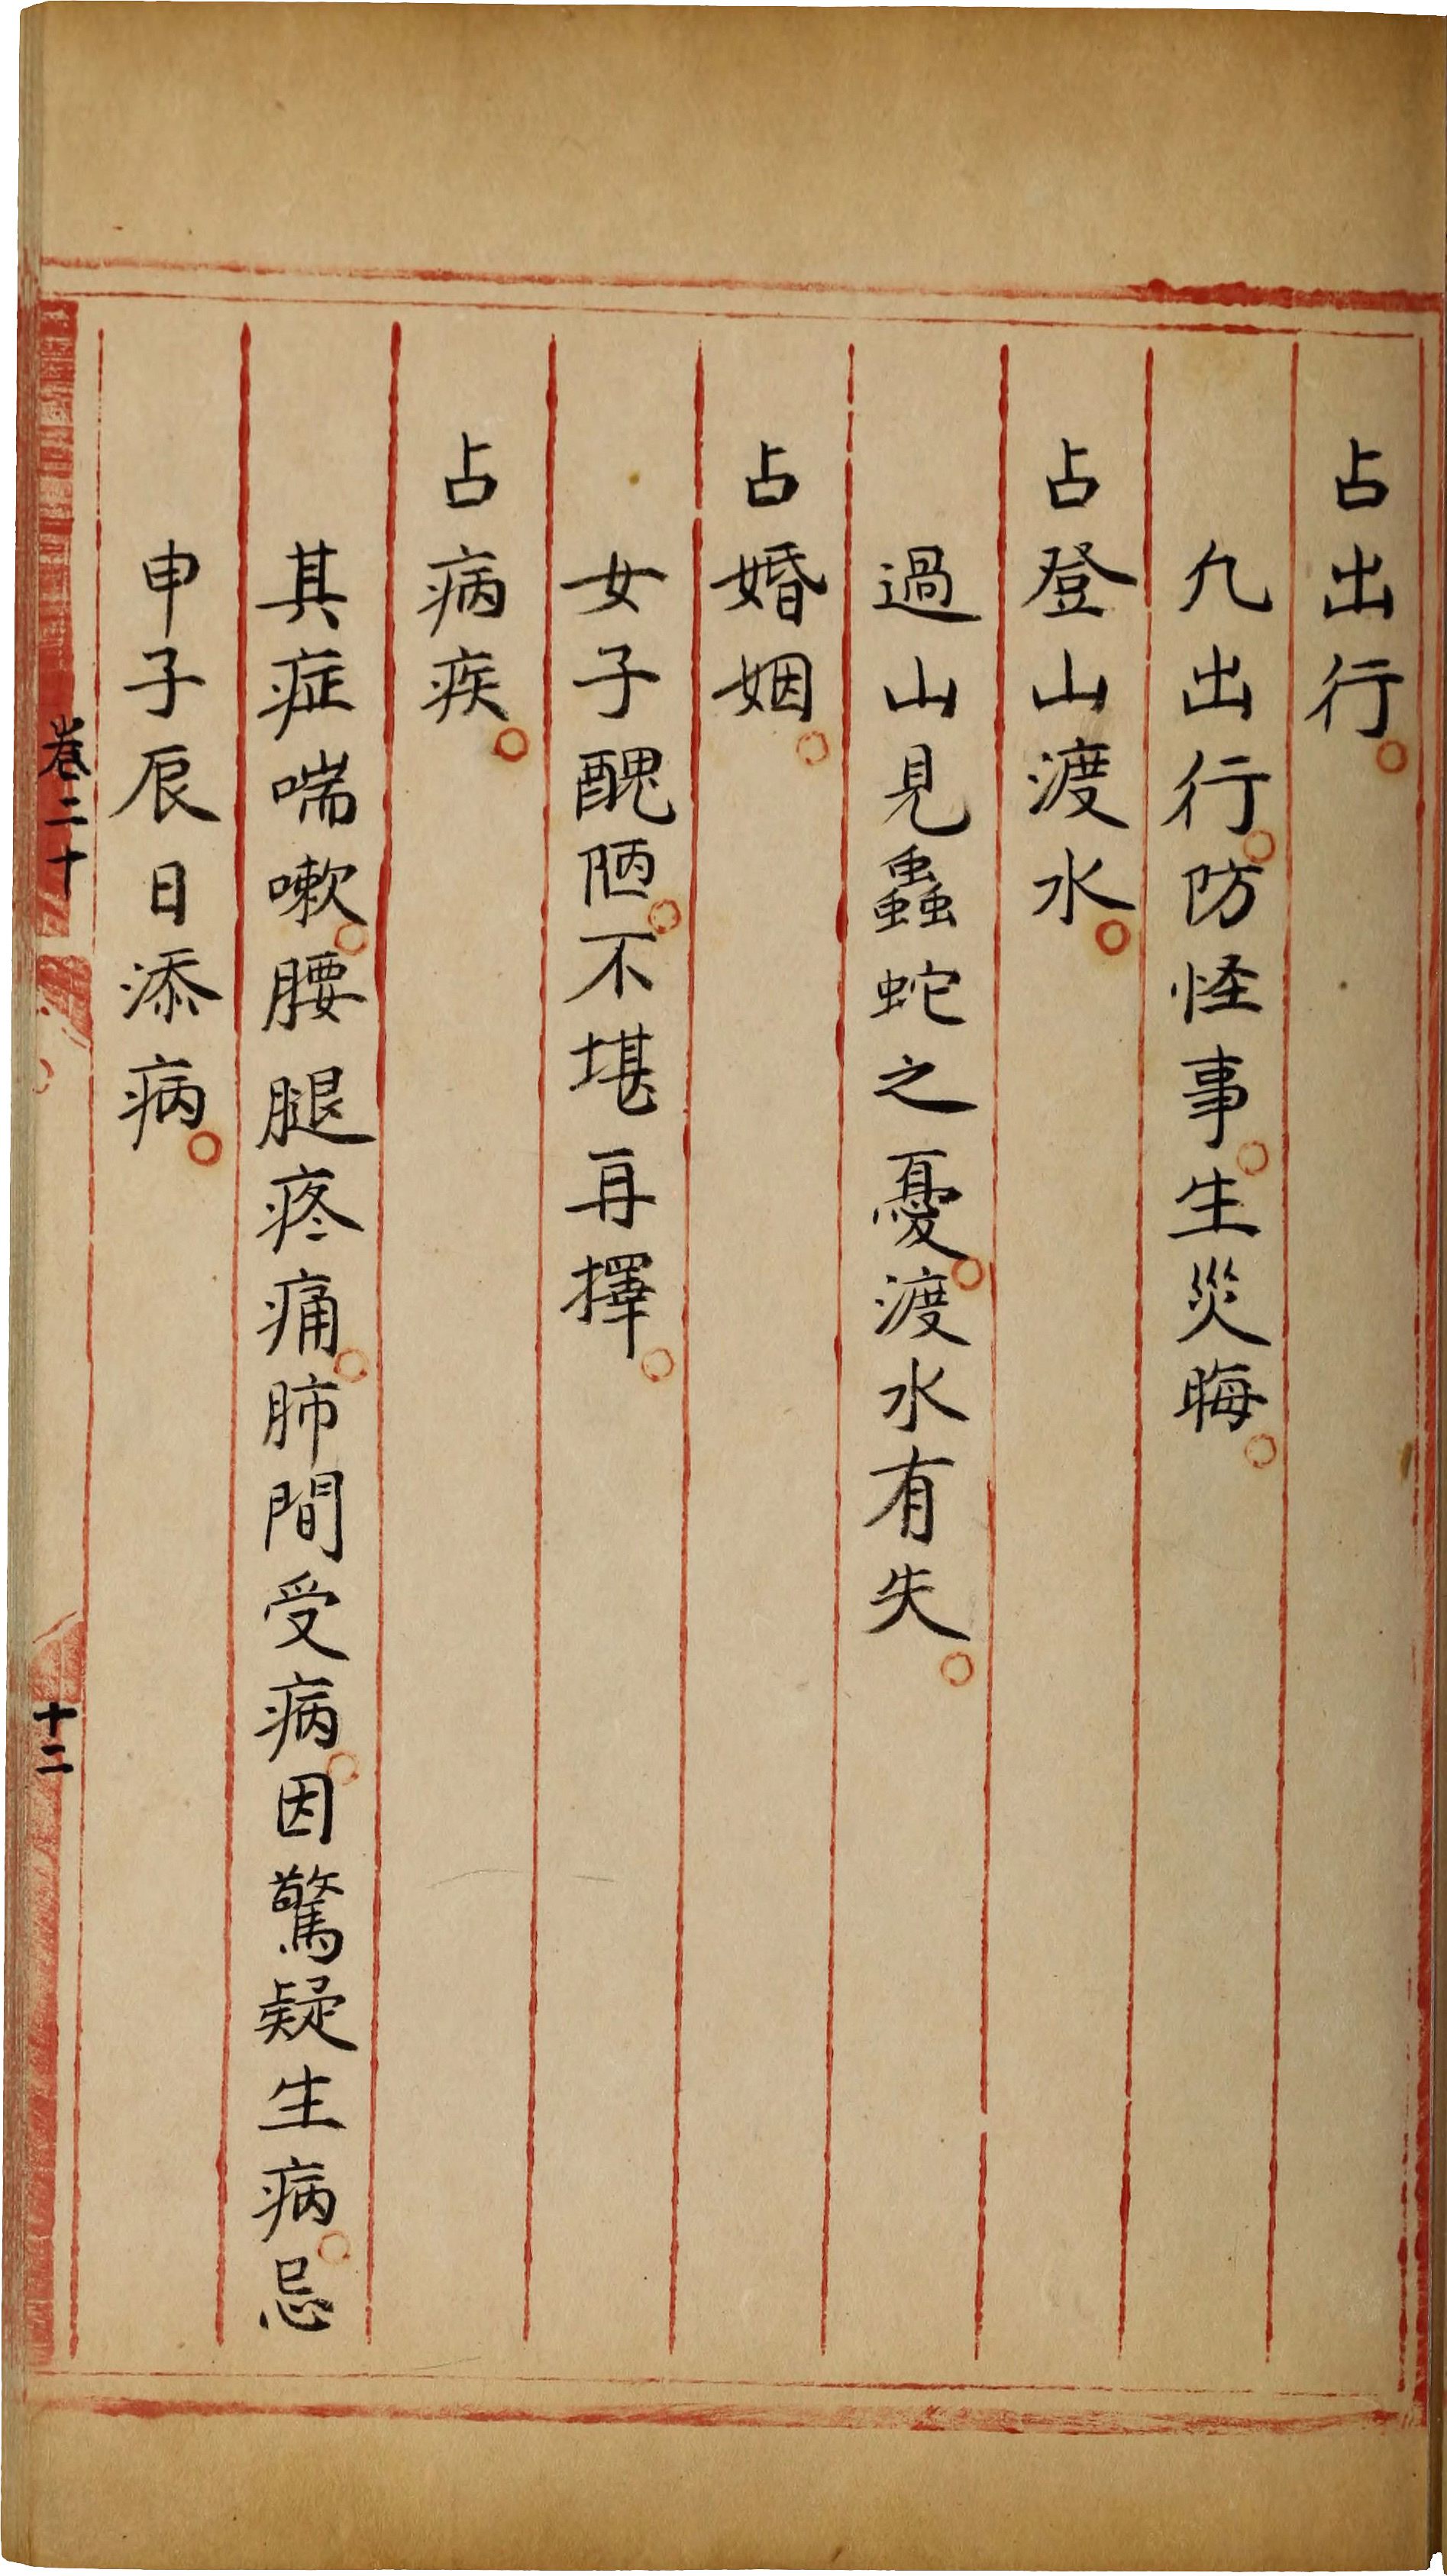 占出行。
凢出行。防怪事。生災晦。
占登山渡水。
過山見蟲蛇之憂。渡水有失。
占婚姻。
女子醜陋。不堪再擇。
占病疾。
其症喘嗽。腰腿疼痛。肺間受病。因驚疑生病。忌
申子辰日添病。
卷二十
十二